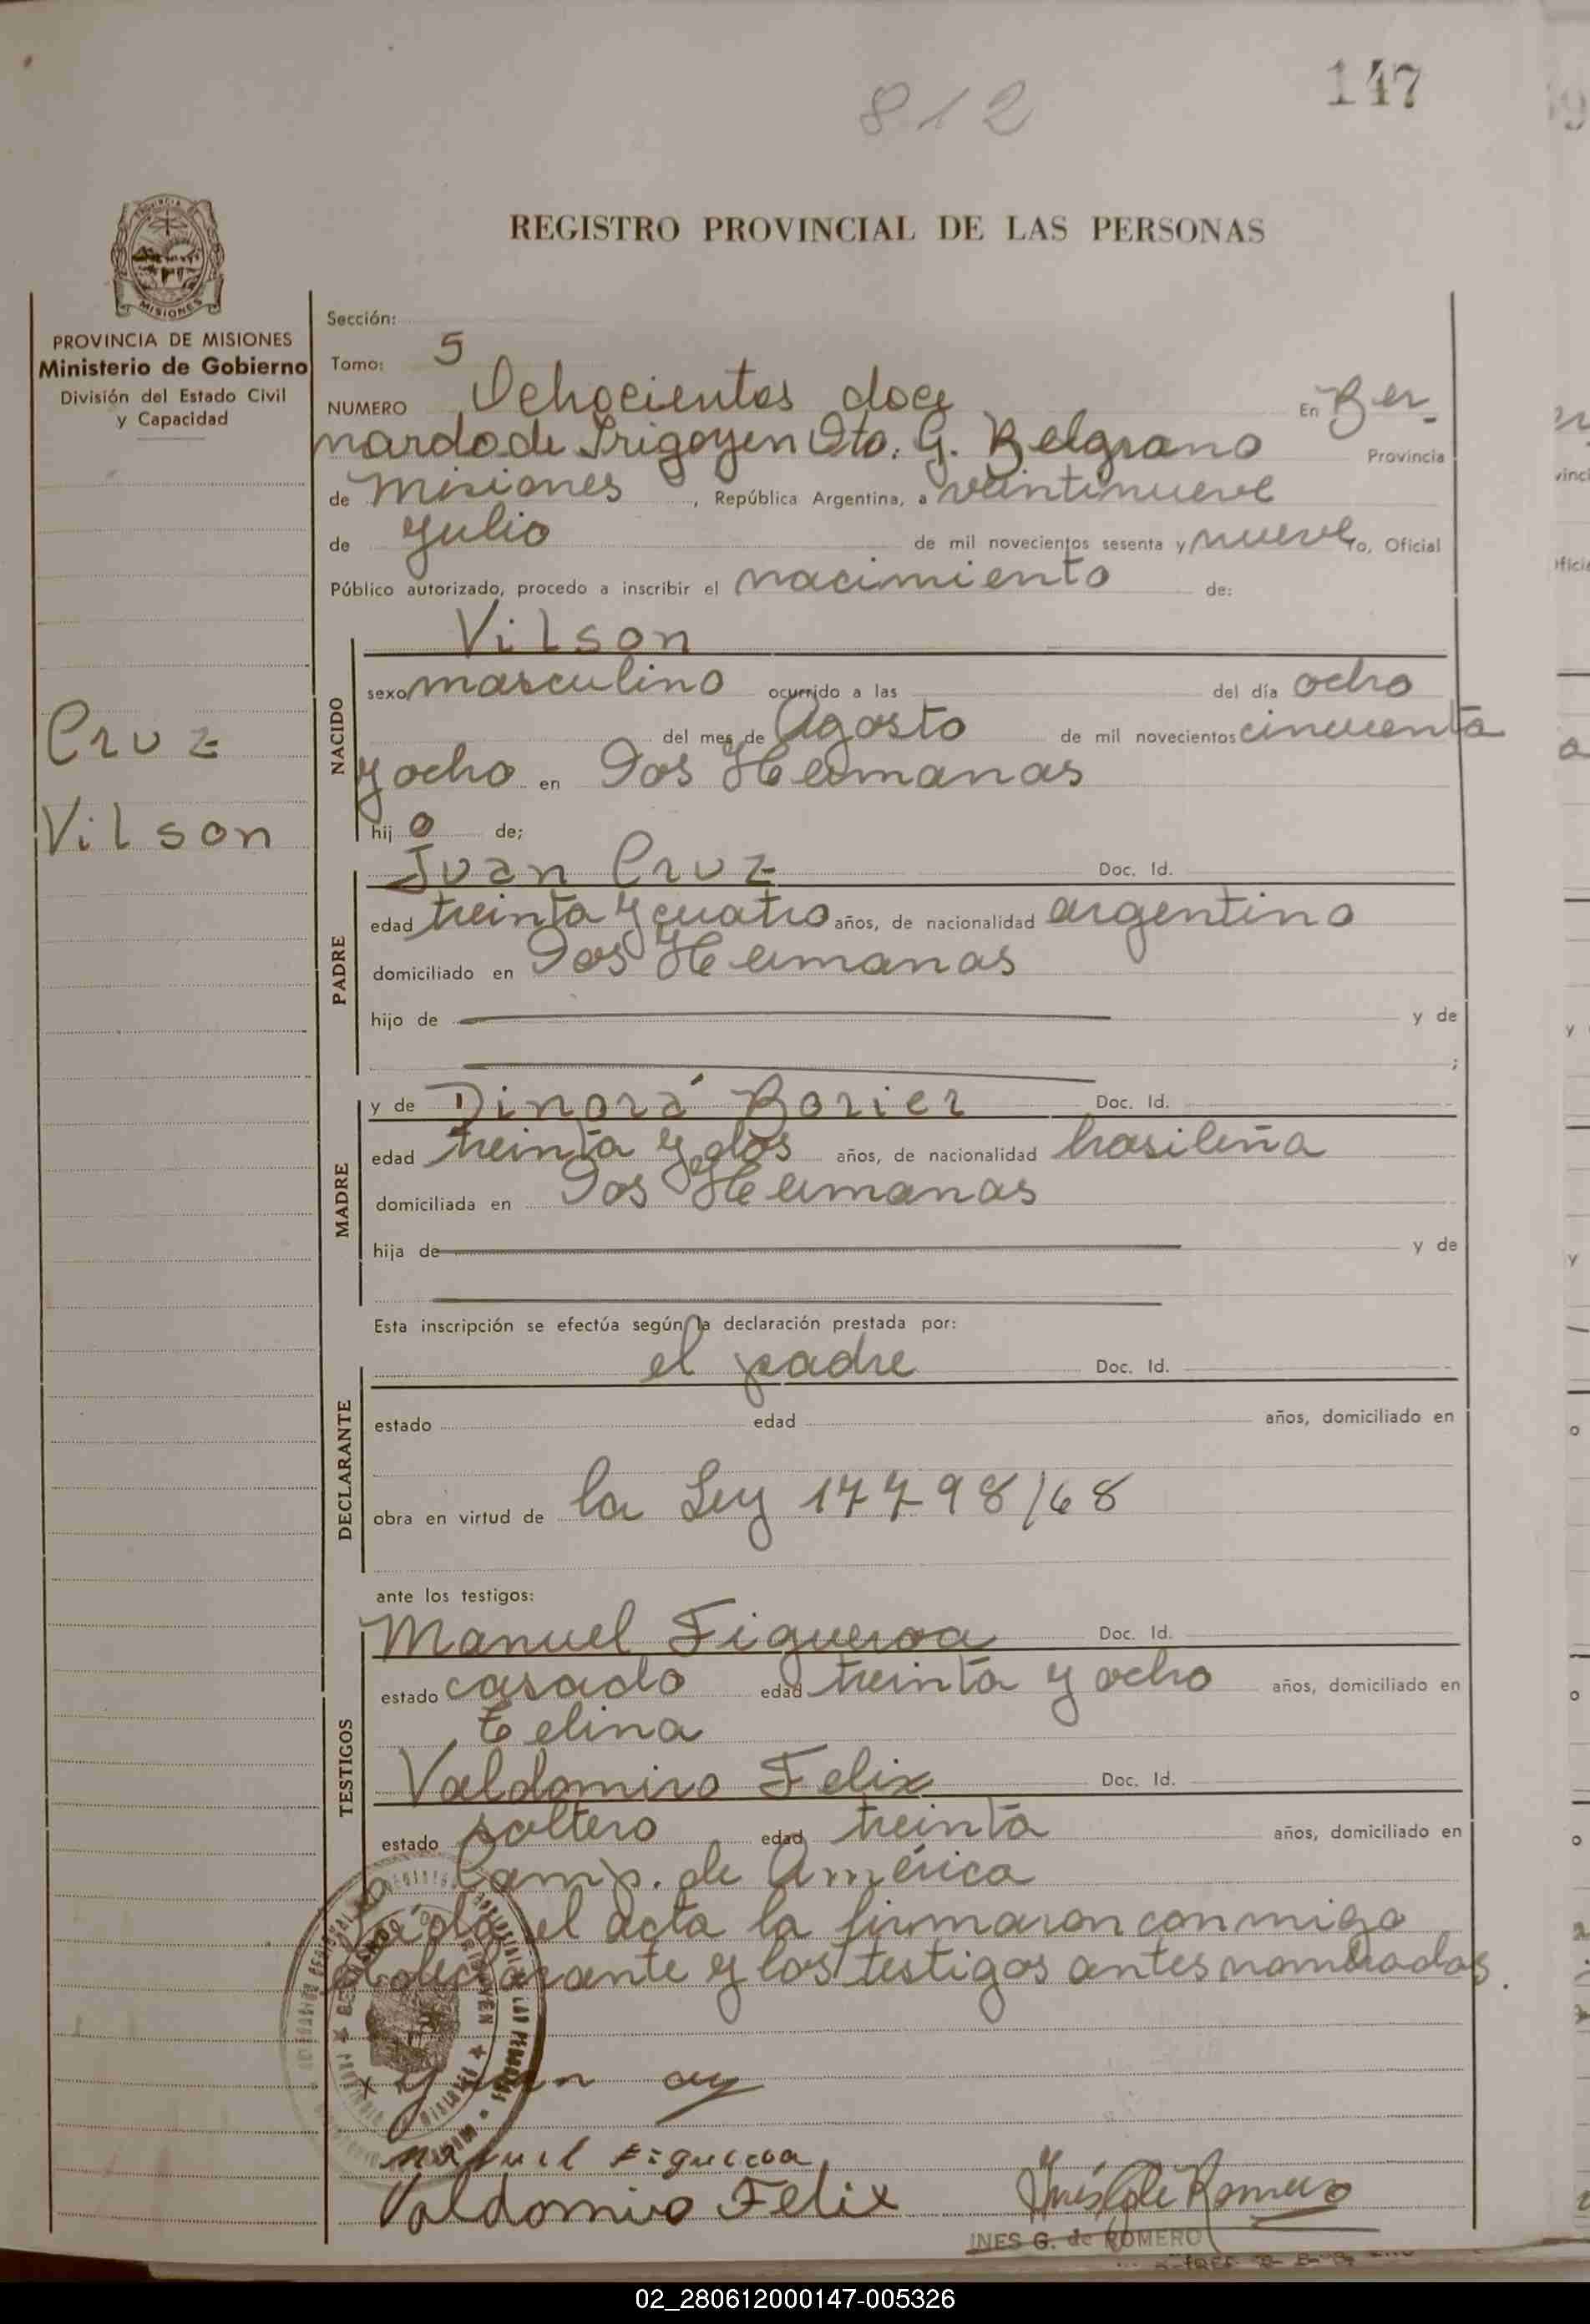 147
812
REGISTRO PROVINCIAL DE LAS PERSONAS
MISIONES
PROVINCIA DE MISIONES
Ministerio de Gobierno
División del Estado Civil
y Capacidad
Cruz
Vilson
Sección:
Tomo: 5
NUMERO Ochocientos doce En Ber-
nardo de Irigoyen Dto. G. Belgrano Provincia
de Misiones, República Argentina, a veintinueve
de Julio de mil novecientos sesenta y nueve Yo, Oficial
Público autorizado, procedo a inscribir el nacimiento de:
Vilson
NACIDO
sexo masculino ocurrido a las del día ocho
del mes de Agosto de mil novecientos cincuenta
y ocho en Dos Hermanas
hijo de;
Juan Cruz Doc. Id.
PADRE
edad treinta y cuatro años, de nacionalidad argentino
domiciliado en Dos Hermanas
hijo de y de
;
y de Dinorá Borier Doc. Id.
MADRE
edad treinta y dos años, de nacionalidad brasileña
domiciliada en Dos Hermanas
hija de y de
Esta inscripción se efectúa según la declaración prestada por:
el padre Doc. Id.
DECLARANTE
estado edad años, domiciliado en
obra en virtud de la Ley 17798/68
ante los testigos:
Manuel Figueroa Doc. Id.
TESTIGOS
estado casado edad treinta y ocho años, domiciliado en
Celina
Valdomiro Felix Doc. Id.
estado soltero edad treinta años, domiciliado en
Camp. de América
Leída el acta la firmaron conmigo
el declarante y los testigos antes nombrados.
x Juan
Manuel Figueroa
Valdomiro Felix
Inés G de Romero
INES G. de ROMERO
02_280612000147-005326